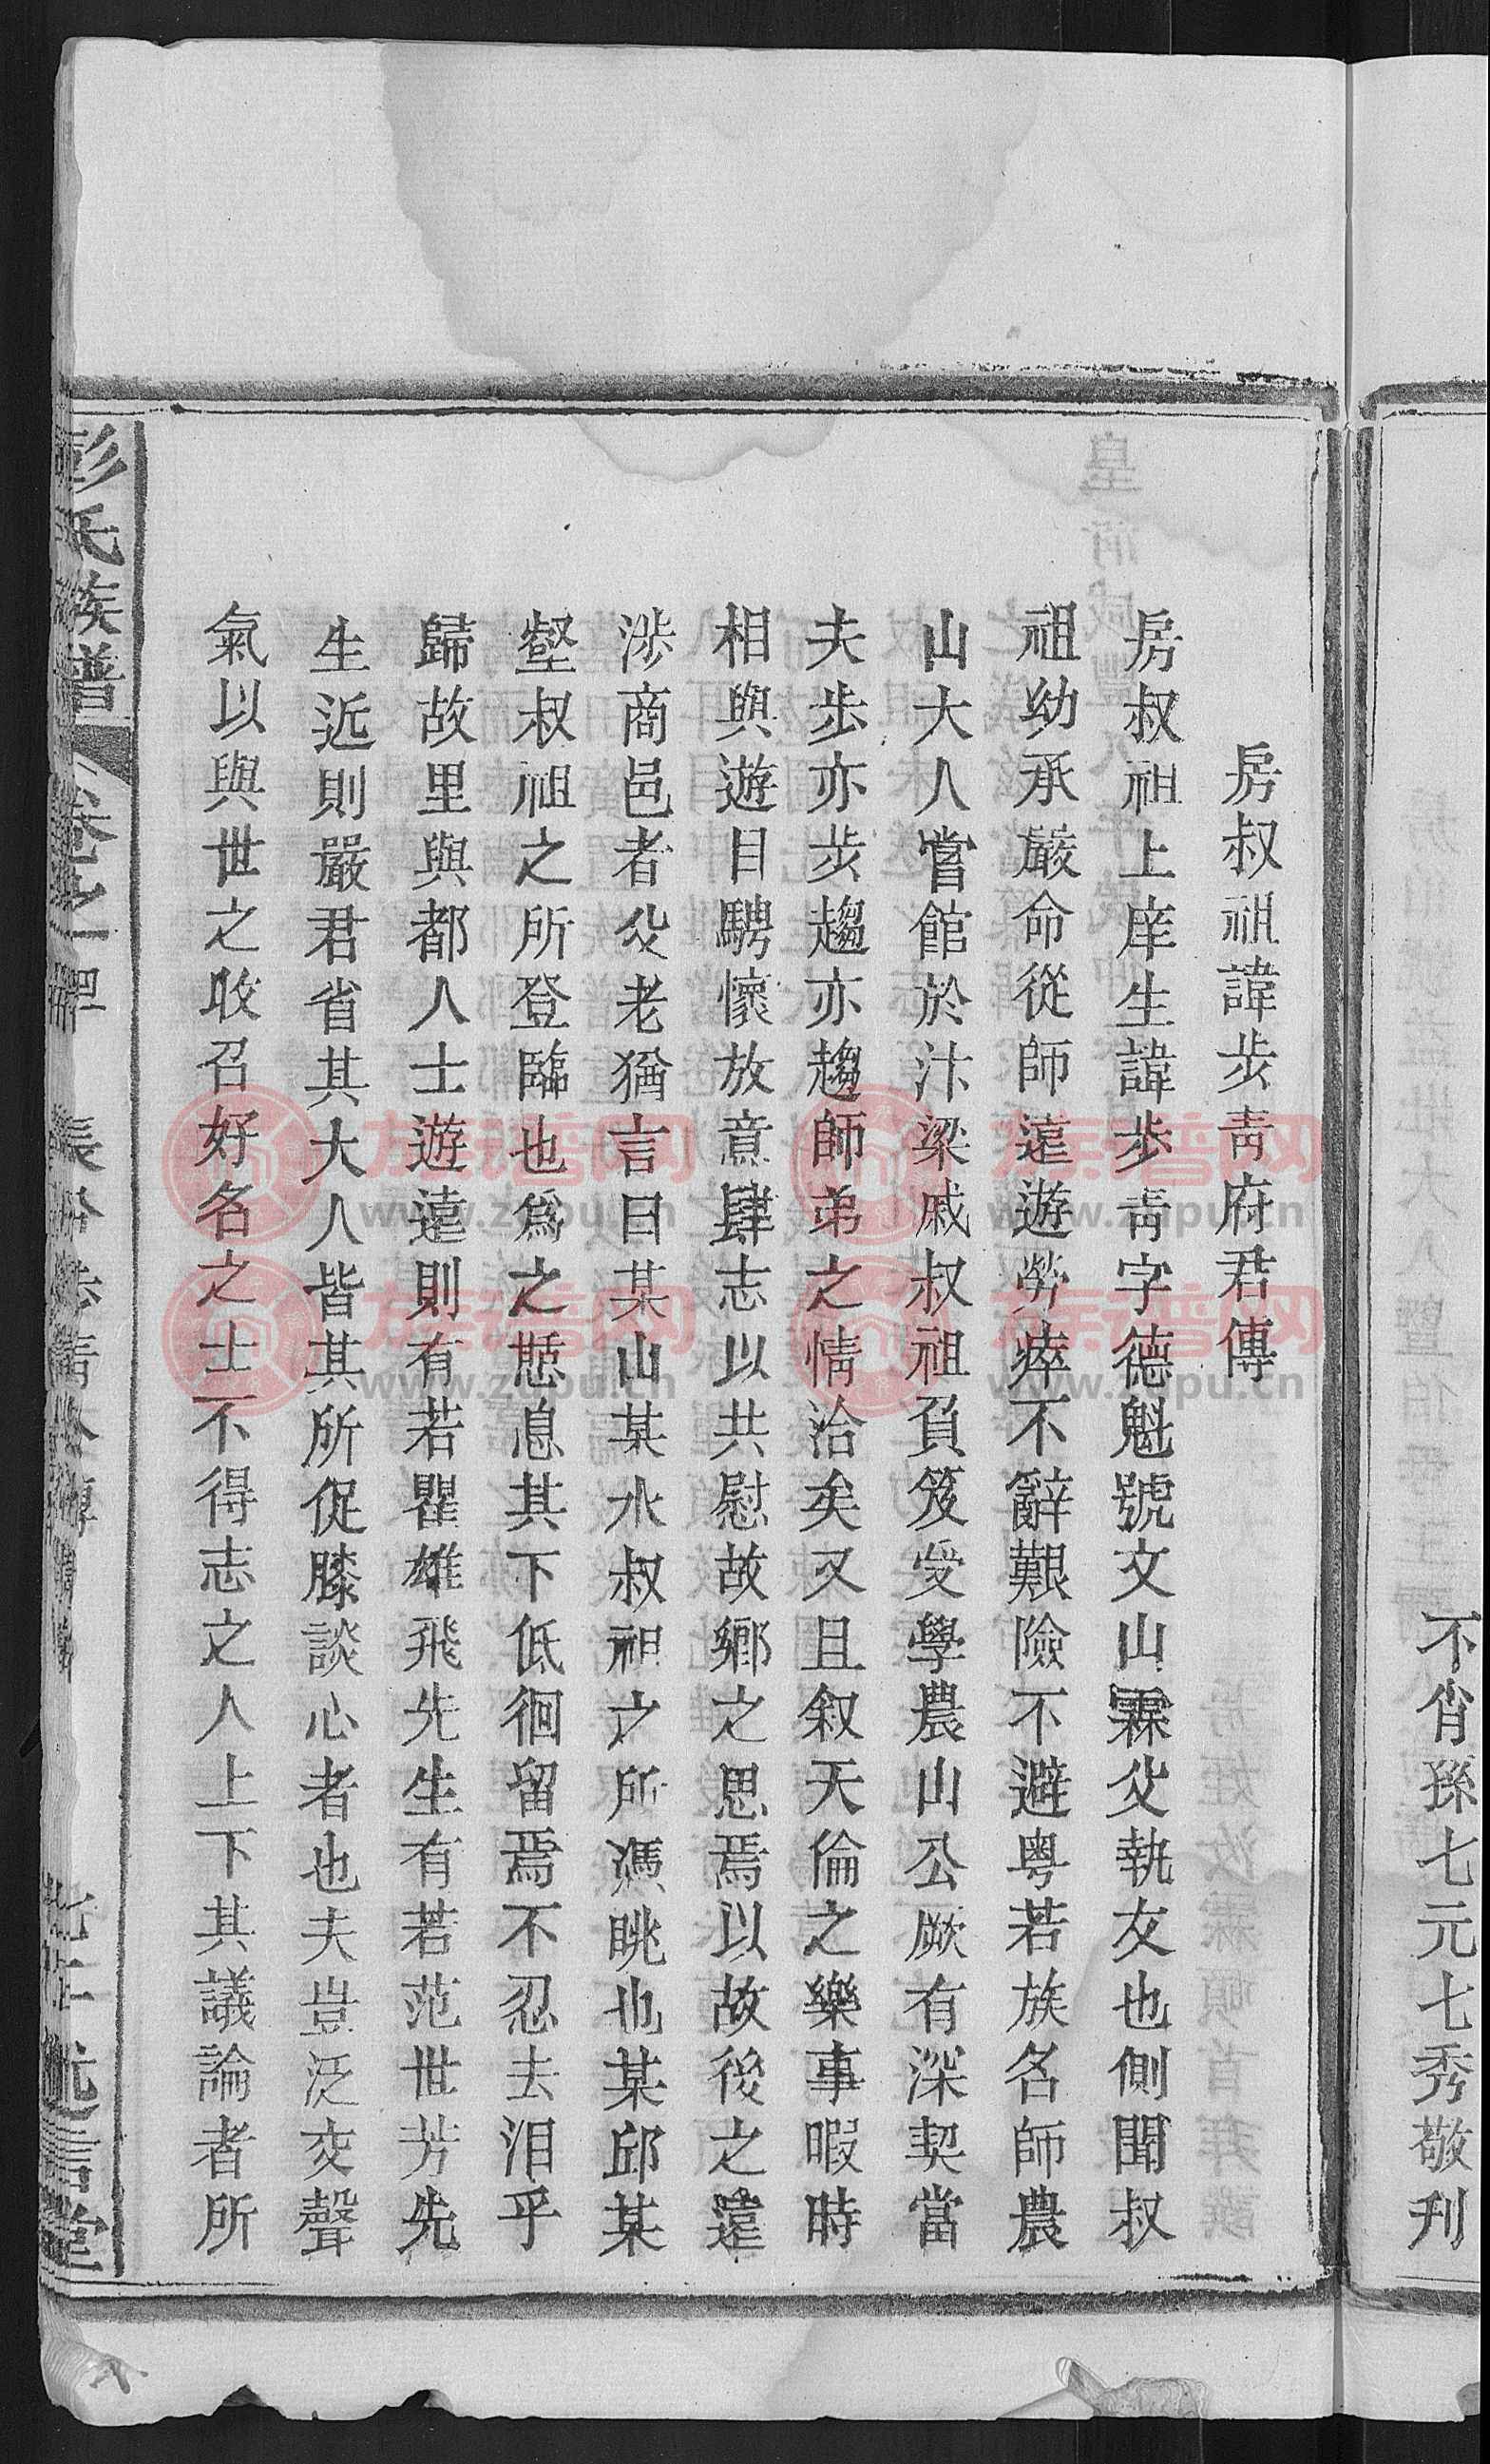 不肖孫七元七秀敬刊
房叔祖諱步青府君傳
房叔祖上庠生諱步青字德魁號文山霖父執友也側聞叔
祖幼承嚴命從師遠遊勞瘁不辭艱險不避粵若族名師農
山大人嘗館於汴梁戚叔祖負笈受學農山公厥有深契當
夫步亦步趨亦趨師弟之情洽矣又且敘天倫之樂事暇時
相與遊目騁懷放意肆志以共慰故鄉之思焉以故後之遠
涉商邑者父老猶言曰某山某水叔祖之所馮眺也某邱某
壑叔祖之所登臨也為之憇息其下低徊留焉不忍去泪乎
歸故里與都人士遊遠則有若瞿雄飛先生有若范世芳先
生近則嚴君省其大人皆其所促膝談心者也夫豈泛交聲
氣以與世之收召好名之士不得志之人上下其議論者所
彭氏族譜
族谱网
www.zupu.cn
族谱网
www.zupu.cn
族谱网
www.zupu.cn
族谱网
www.zupu.cn